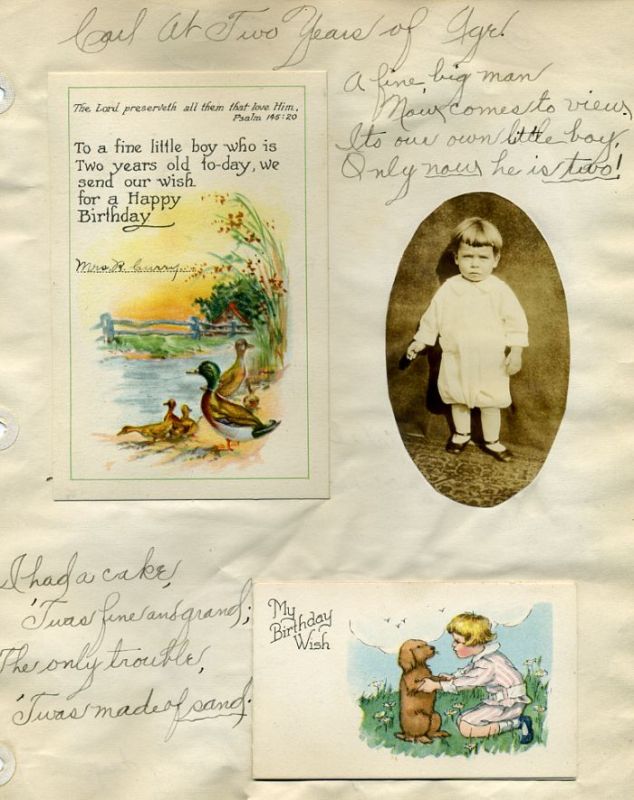 Carl At Two Years of Age.
The Lord preserveth all them that love Him,
Psalm 145:20
To a fine little boy who is
Two years old to-day, we
send our wish
for a Happy
Birthday
Mrs. R. Curry
A fine, big man
Now comes to view,
Its our own little boy,
Only now he is two!
I had a cake,
'Twas fine and grand;
The only trouble,
'Twas made of sand.
My
Birthday
Wish